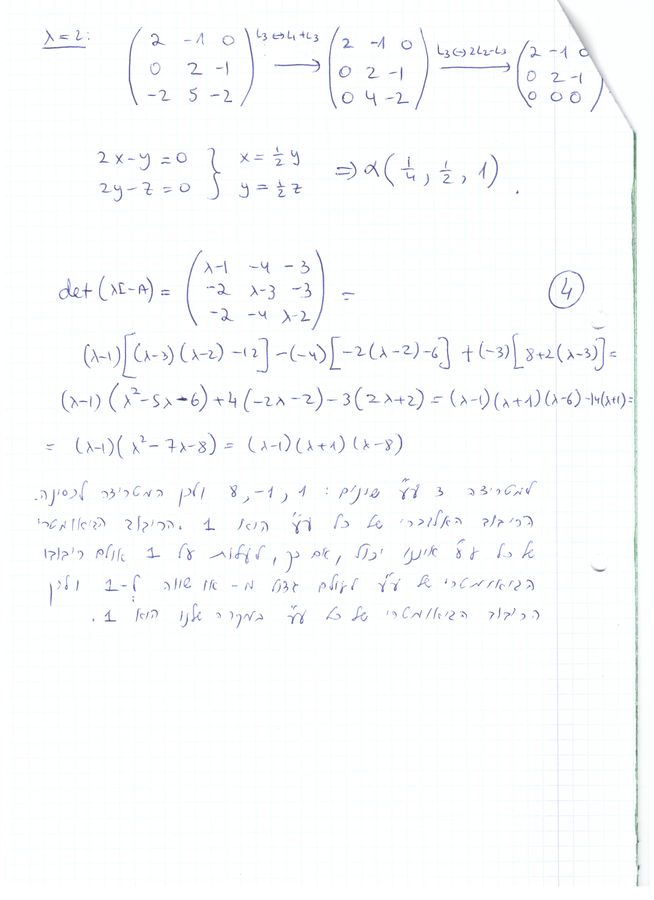 λ=2:
( 2 -1 0 ; 0 2 -1 ; -2 5 -2 ) L3↔L1+L3 → ( 2 -1 0 ; 0 2 -1 ; 0 4 -2 ) L3↔2L2-L3 → ( 2 -1 0 ; 0 2 -1 ; 0 0 0 )
2x-y=0 } x=½y ⇒ α(¼, ½, 1).
2y-z=0 } y=½z
④
det(λI-A) = ( λ-1 -4 -3 ; -2 λ-3 -3 ; -2 -4 λ-2 ) =
(λ-1)[(λ-3)(λ-2)-12]-(-4)[-2(λ-2)-6]+(-3)[8+2(λ-3)]=
(λ-1)(λ²-5λ-6)+4(-2λ-2)-3(2λ+2)=(λ-1)(λ+1)(λ-6)-14(λ+1)=
= (λ-1)(λ²-7λ-8) = (λ-1)(λ+1)(λ-8)
למטריצה 3 ע"ע שונים: 1, -1, 8 ולכן המטריצה לכסינה.
הריבוב האלגברי של כל ע"ע הוא 1. הריבוב הגיאומטרי
של כל ע"ע איננו יכול, אם כך, לעלות על 1 אולם ריבובו
הגיאומטרי של ע"ע לעולם גדול מ- או שווה ל-1 ולכן
הריבוב הגיאומטרי של כל ע"ע במקרה שלנו הוא 1.